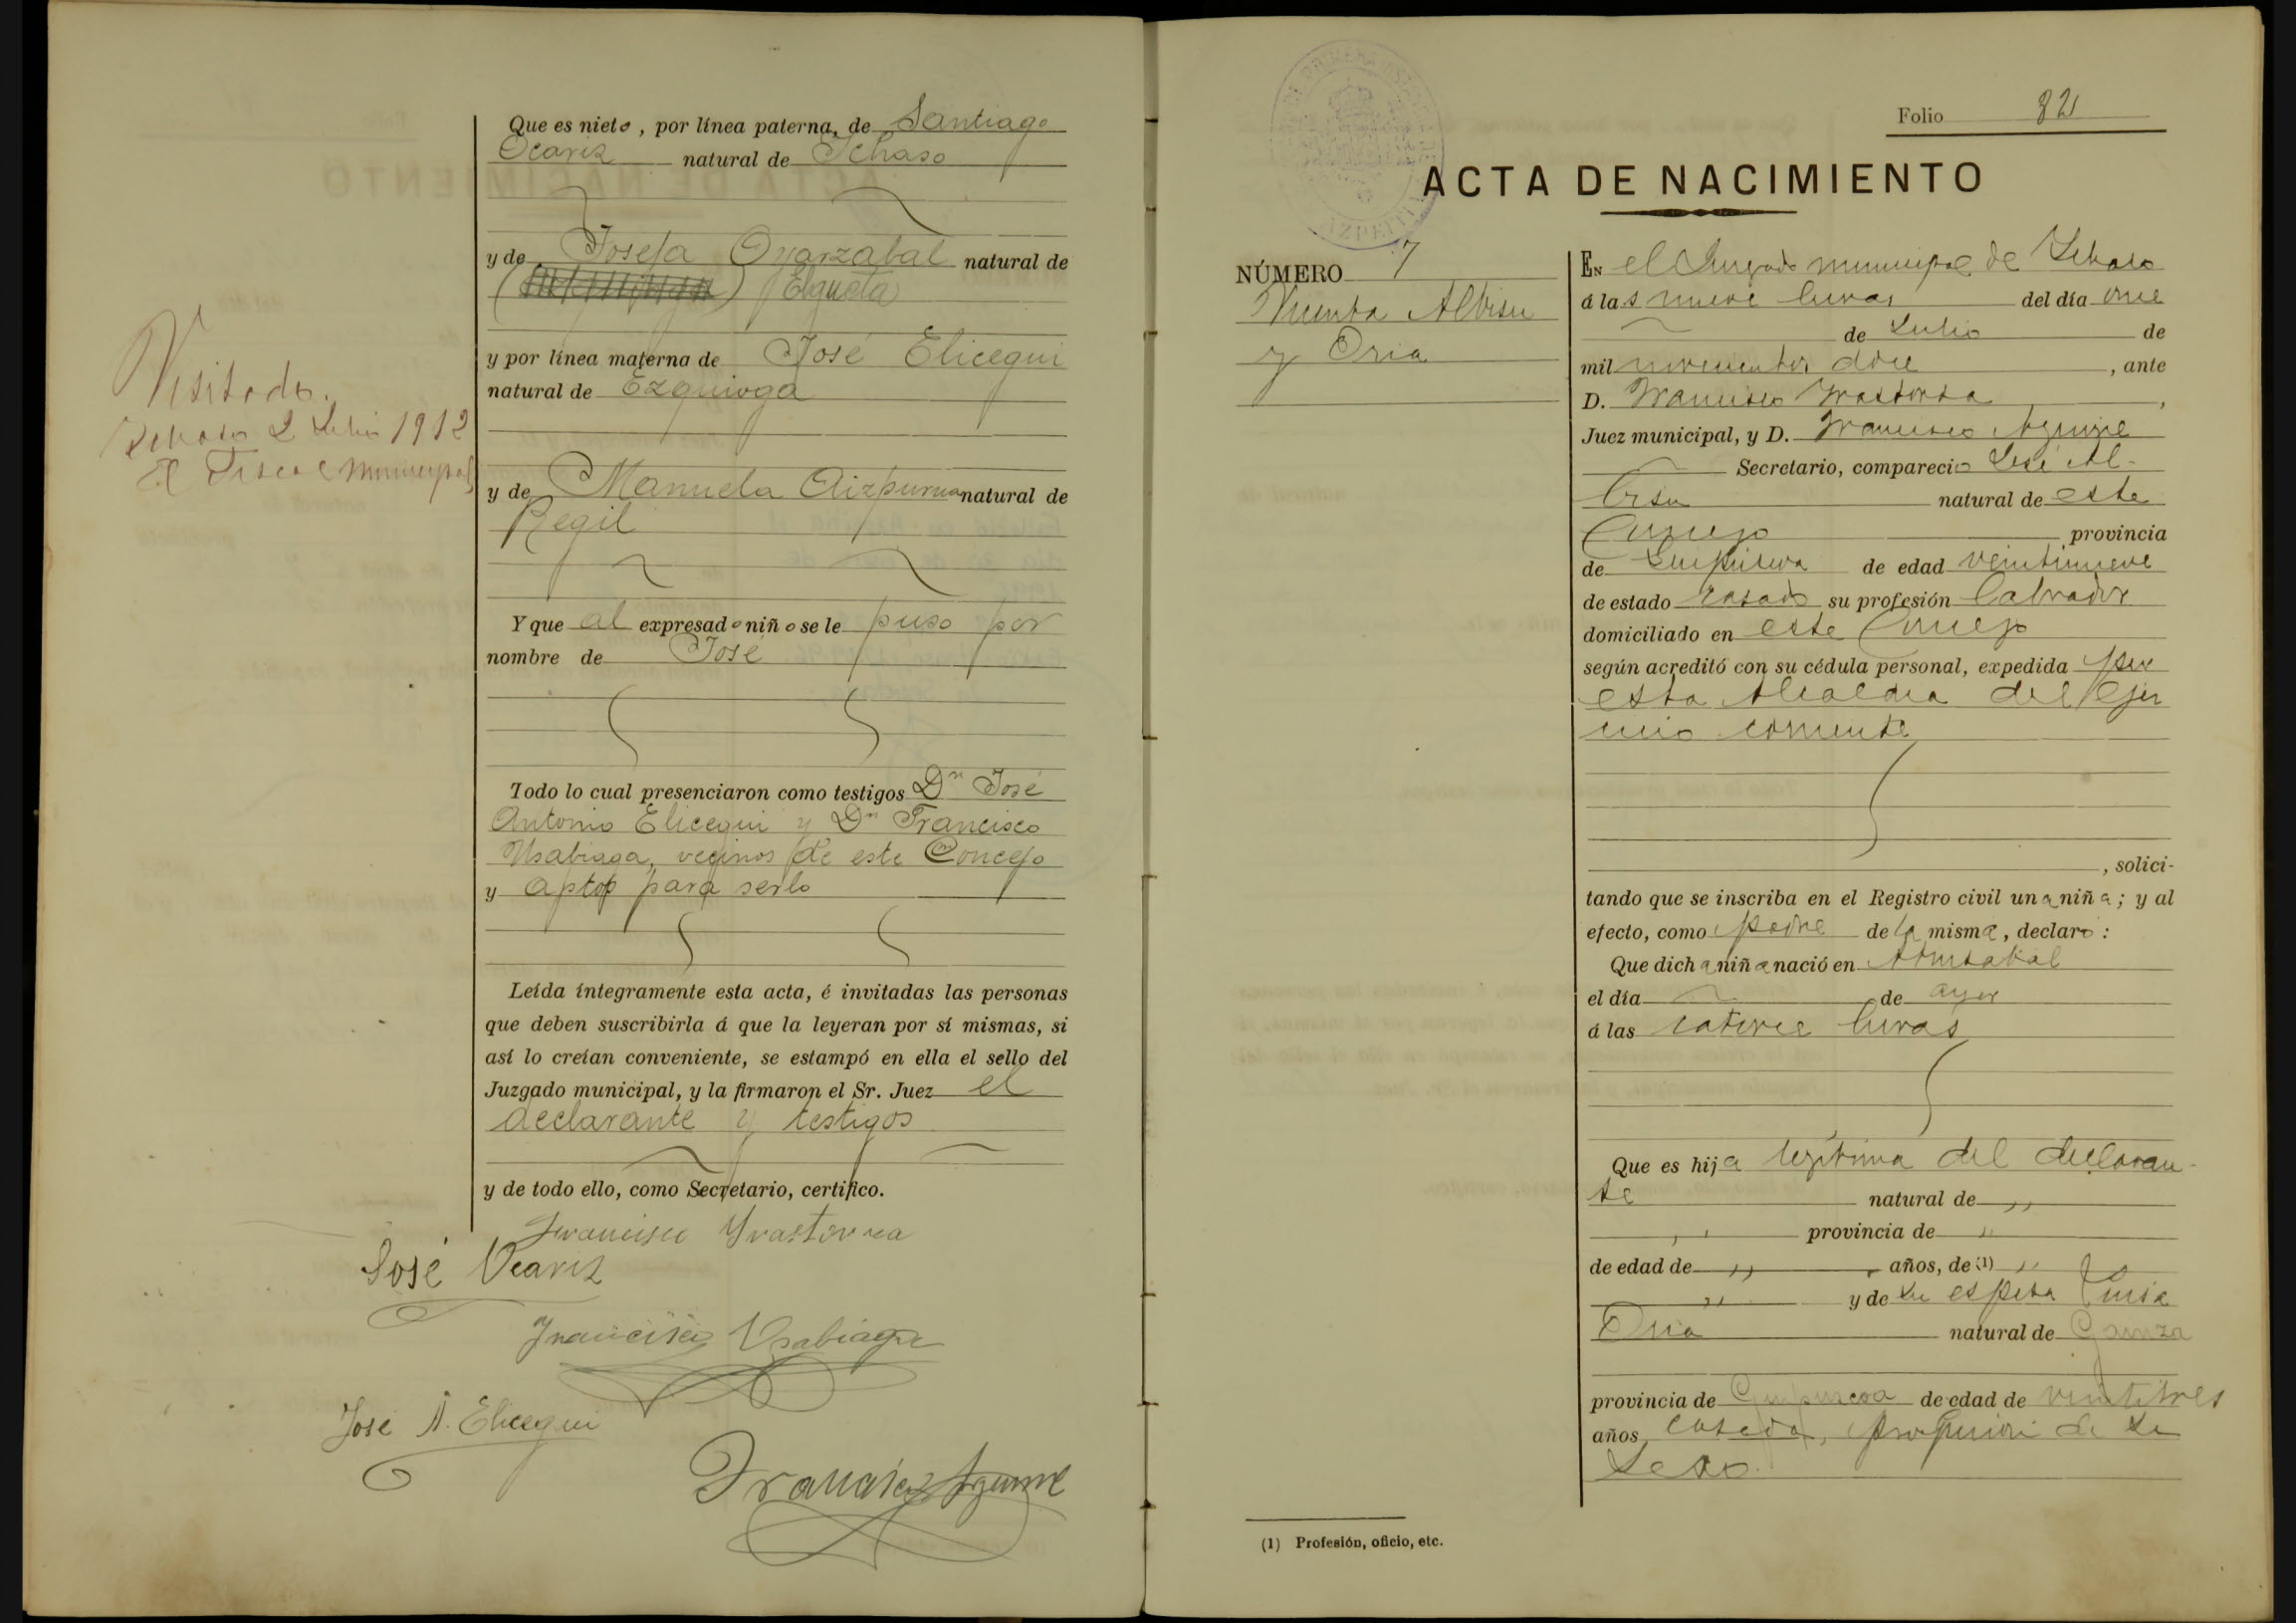 Que es nieto, por línea paterna, de Santiago
Ocariz natural de Ichaso
y de Josefa Oyarzabal natural de
Elgueta
y por línea materna de José Elicegui
natural de Ezquioga
y de Manuela Aizpurua natural de
Regil
Y que al expresado niño se le puso por
nombre de José
Todo lo cual presenciaron como testigos Dn José
Antonio Elicegui y Dn Francisco
Usabiaga, vecinos de este Concejo
y aptos para serlo
Leída íntegramente esta acta, é invitadas las personas
que deben suscribirla á que la leyeran por sí mismas, si
así lo creían conveniente, se estampó en ella el sello del
Juzgado municipal, y la firmaron el Sr. Juez el
declarante y testigos
y de todo ello, como Secretario, certifico.
Francisco Yrastorza
José Ocariz
Francisco Usabiaga
José A. Elicegui
Francisco Aguirre
Visitado.
Ichaso 2 Julio 1912
El Fiscal municipal
AZPEITIA
Folio 82
ACTA DE NACIMIENTO
NÚMERO 7
Vicenta Albisu
y Oria
EN el Juzgado municipal de Ichaso
á las nueve horas del día once
de Julio de
mil novecientos doce, ante
D. Francisco Yrastorza,
Juez municipal, y D. Francisco Aguirre
Secretario, compareció José Al-
bisu natural de este
Concejo provincia
de Guipúzcoa de edad veintinueve
de estado casado su profesión labrador
domiciliado en este Concejo
según acreditó con su cédula personal, expedida por
esta Alcaldia del ejer
cicio corriente
, solici-
tando que se inscriba en el Registro civil una niña; y al
efecto, como padre de la misma, declaró:
Que dicha niña nació en
el día de ayer
á las catorce horas
Que es hija legítima del declaran-
te natural de "
" provincia de "
de edad de " años, de (1) "
" y de su esposa Luisa
Oria natural de Gainza
provincia de Guipuzcoa de edad de veintitres
años, casada, profesión de su
sexo.
(1) Profesión, oficio, etc.